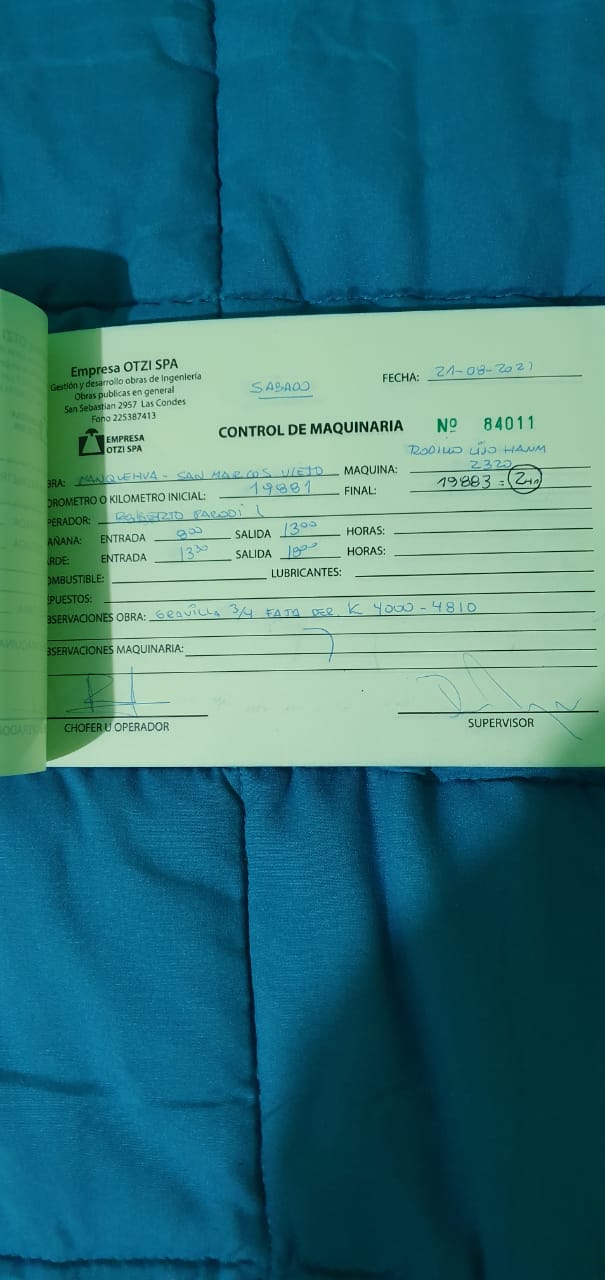 Empresa OTZI SPA
Gestión y desarrollo obras de Ingeniería
Obras publicas en general
San Sebastian 2957 Las Condes
Fono 225387413
EMPRESA
OTZI SPA
SABADO
FECHA: 21-08-2021
CONTROL DE MAQUINARIA Nº 84011
RODILLO LISO HAMM
BRA: MANQUEHUA - SAN MARCOS VIEJO MAQUINA: 2320
OROMETRO O KILOMETRO INICIAL: 19881 FINAL: 19883 = 2
PERADOR: ROBERTO PARODI L
AÑANA: ENTRADA 8:00 SALIDA 13:00 HORAS:
RDE: ENTRADA 13:30 SALIDA 18:00 HORAS:
OMBUSTIBLE: LUBRICANTES:
EPUESTOS:
BSERVACIONES OBRA: GRAVILLA 3/4 FAJA DER. K 4000 - 4810
BSERVACIONES MAQUINARIA:
CHOFER U OPERADOR SUPERVISOR